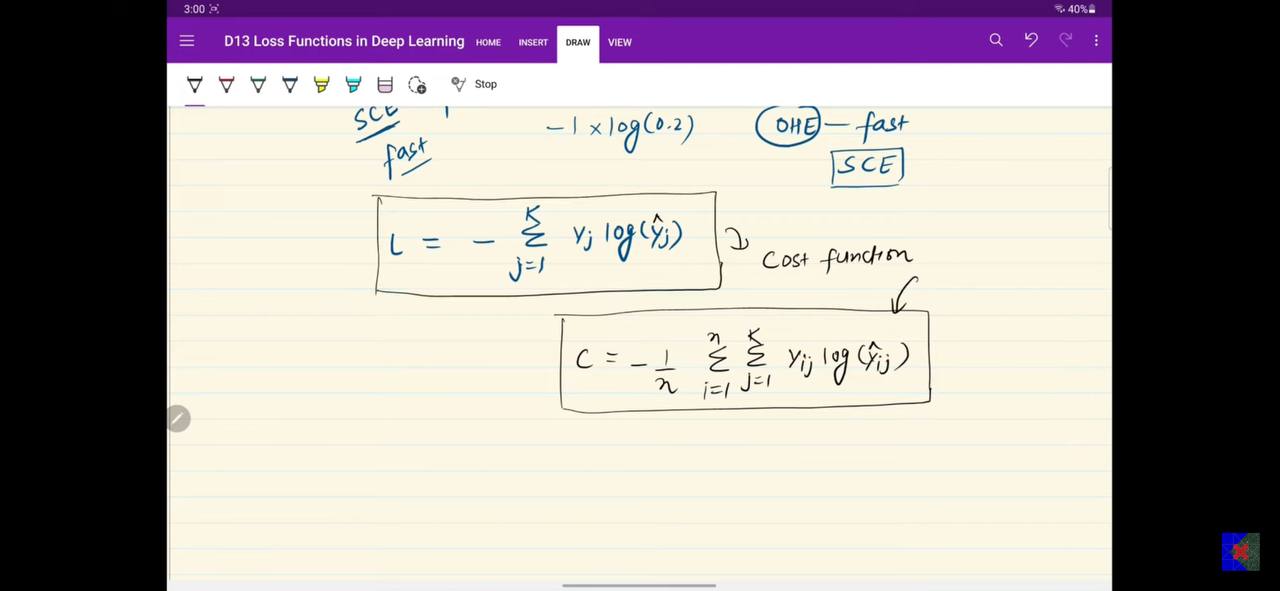 3:00 40%
D13 Loss Functions in Deep Learning HOME INSERT DRAW VIEW
Stop
SCE
fast
-1 × log(0.2)
OHE — fast
SCE
L = - K Σ j=1 yj log(ŷj)
Cost function
C = - 1/n n Σ i=1 K Σ j=1 yij log(ŷij)